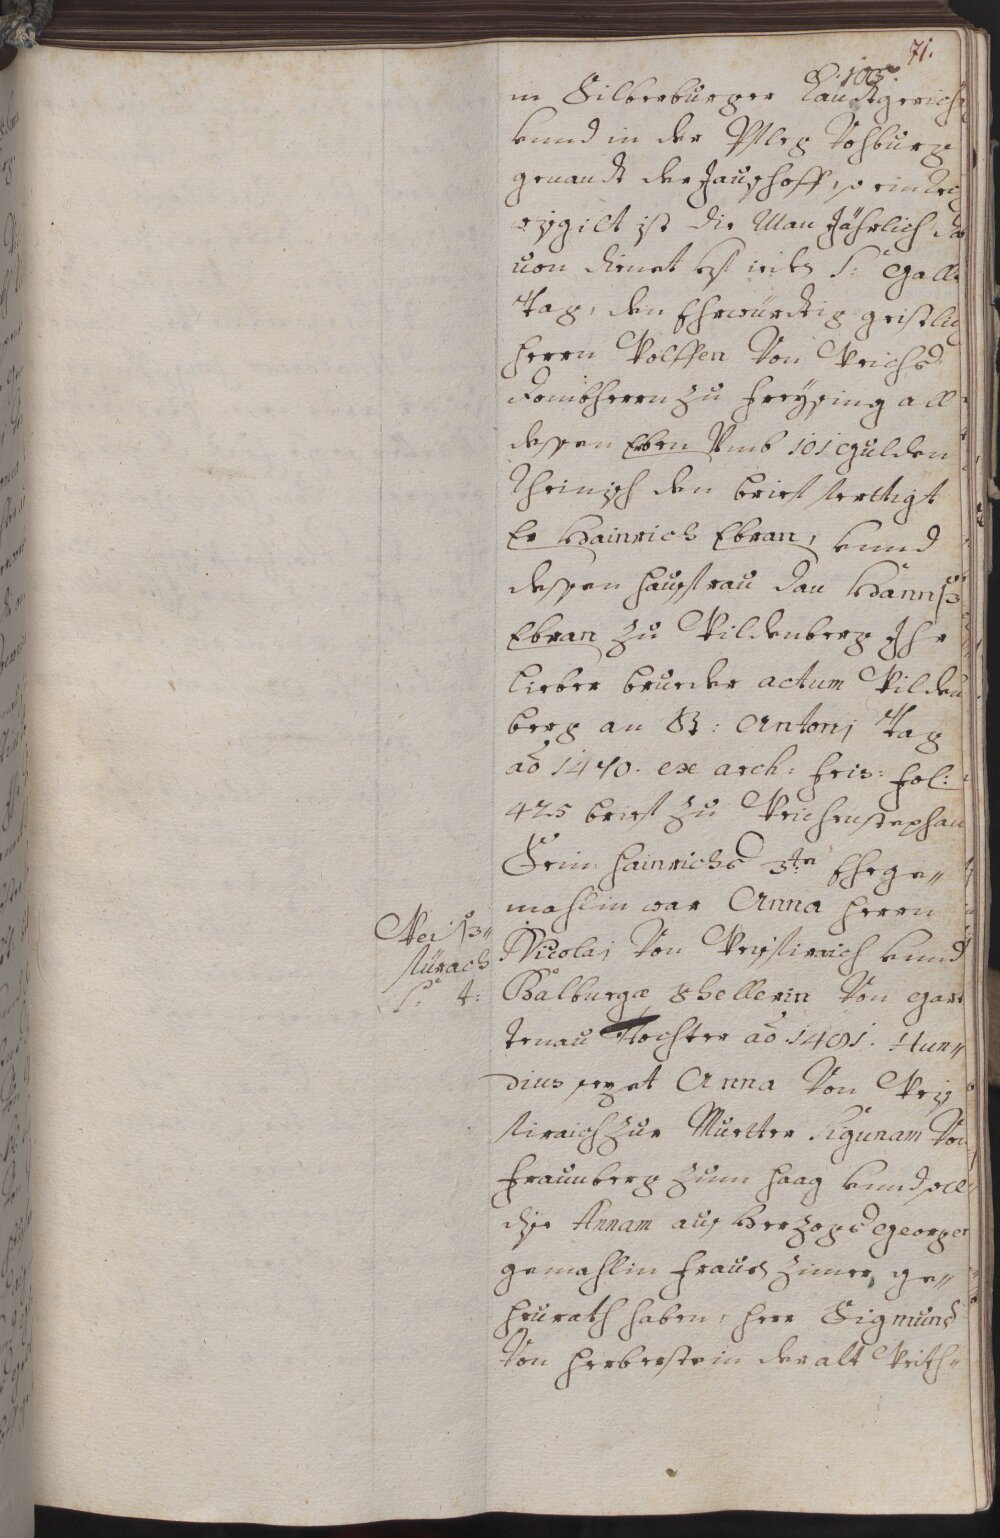 71.
P. 103.
in Bilberburger Landtgerich
vnnd in der Pfleg Vohburg
genandt der Haushoff, so ein
gilt ist die Man Jährlich da
uon dienet ieden S: Galle
Tag, den Ehrwürdtig geistlich
herrn Wolffen Von Weichs
Dombherrn zu Freysing all
dessen Erben Vmb 101 Gulden
Rheinisch den brief ferttigt
Er Hainrich Ebran, vnnd
dessen haussfrau dan Hannss
Ebran zu Wildenberg Ihr
lieber brueder actum Wilden
berg an St: Antonj Tag
aõ 1470. ex arch: fris: fol:
425 brief zu Weichenstephan
Sein Hainrichs 3te Ehege„
mahlin war Anna herrn
Nicolaj Von Weissiraich vnnd
Walburgæ Thellerin Von Gar
tenau Tochter aõ 1481. Hun„
dius sezet Anna Von Weiss
firaich zur Muetter Sigunam Von
Fraunberg zum Haag vnnd soll
dise Annam aus Herzogs George
gemahlin Frauen Zimer, ge„
heurath haben, herr Sigmund
Von Herberstein der alt Weith„
Weiss„
fürach
S. t: